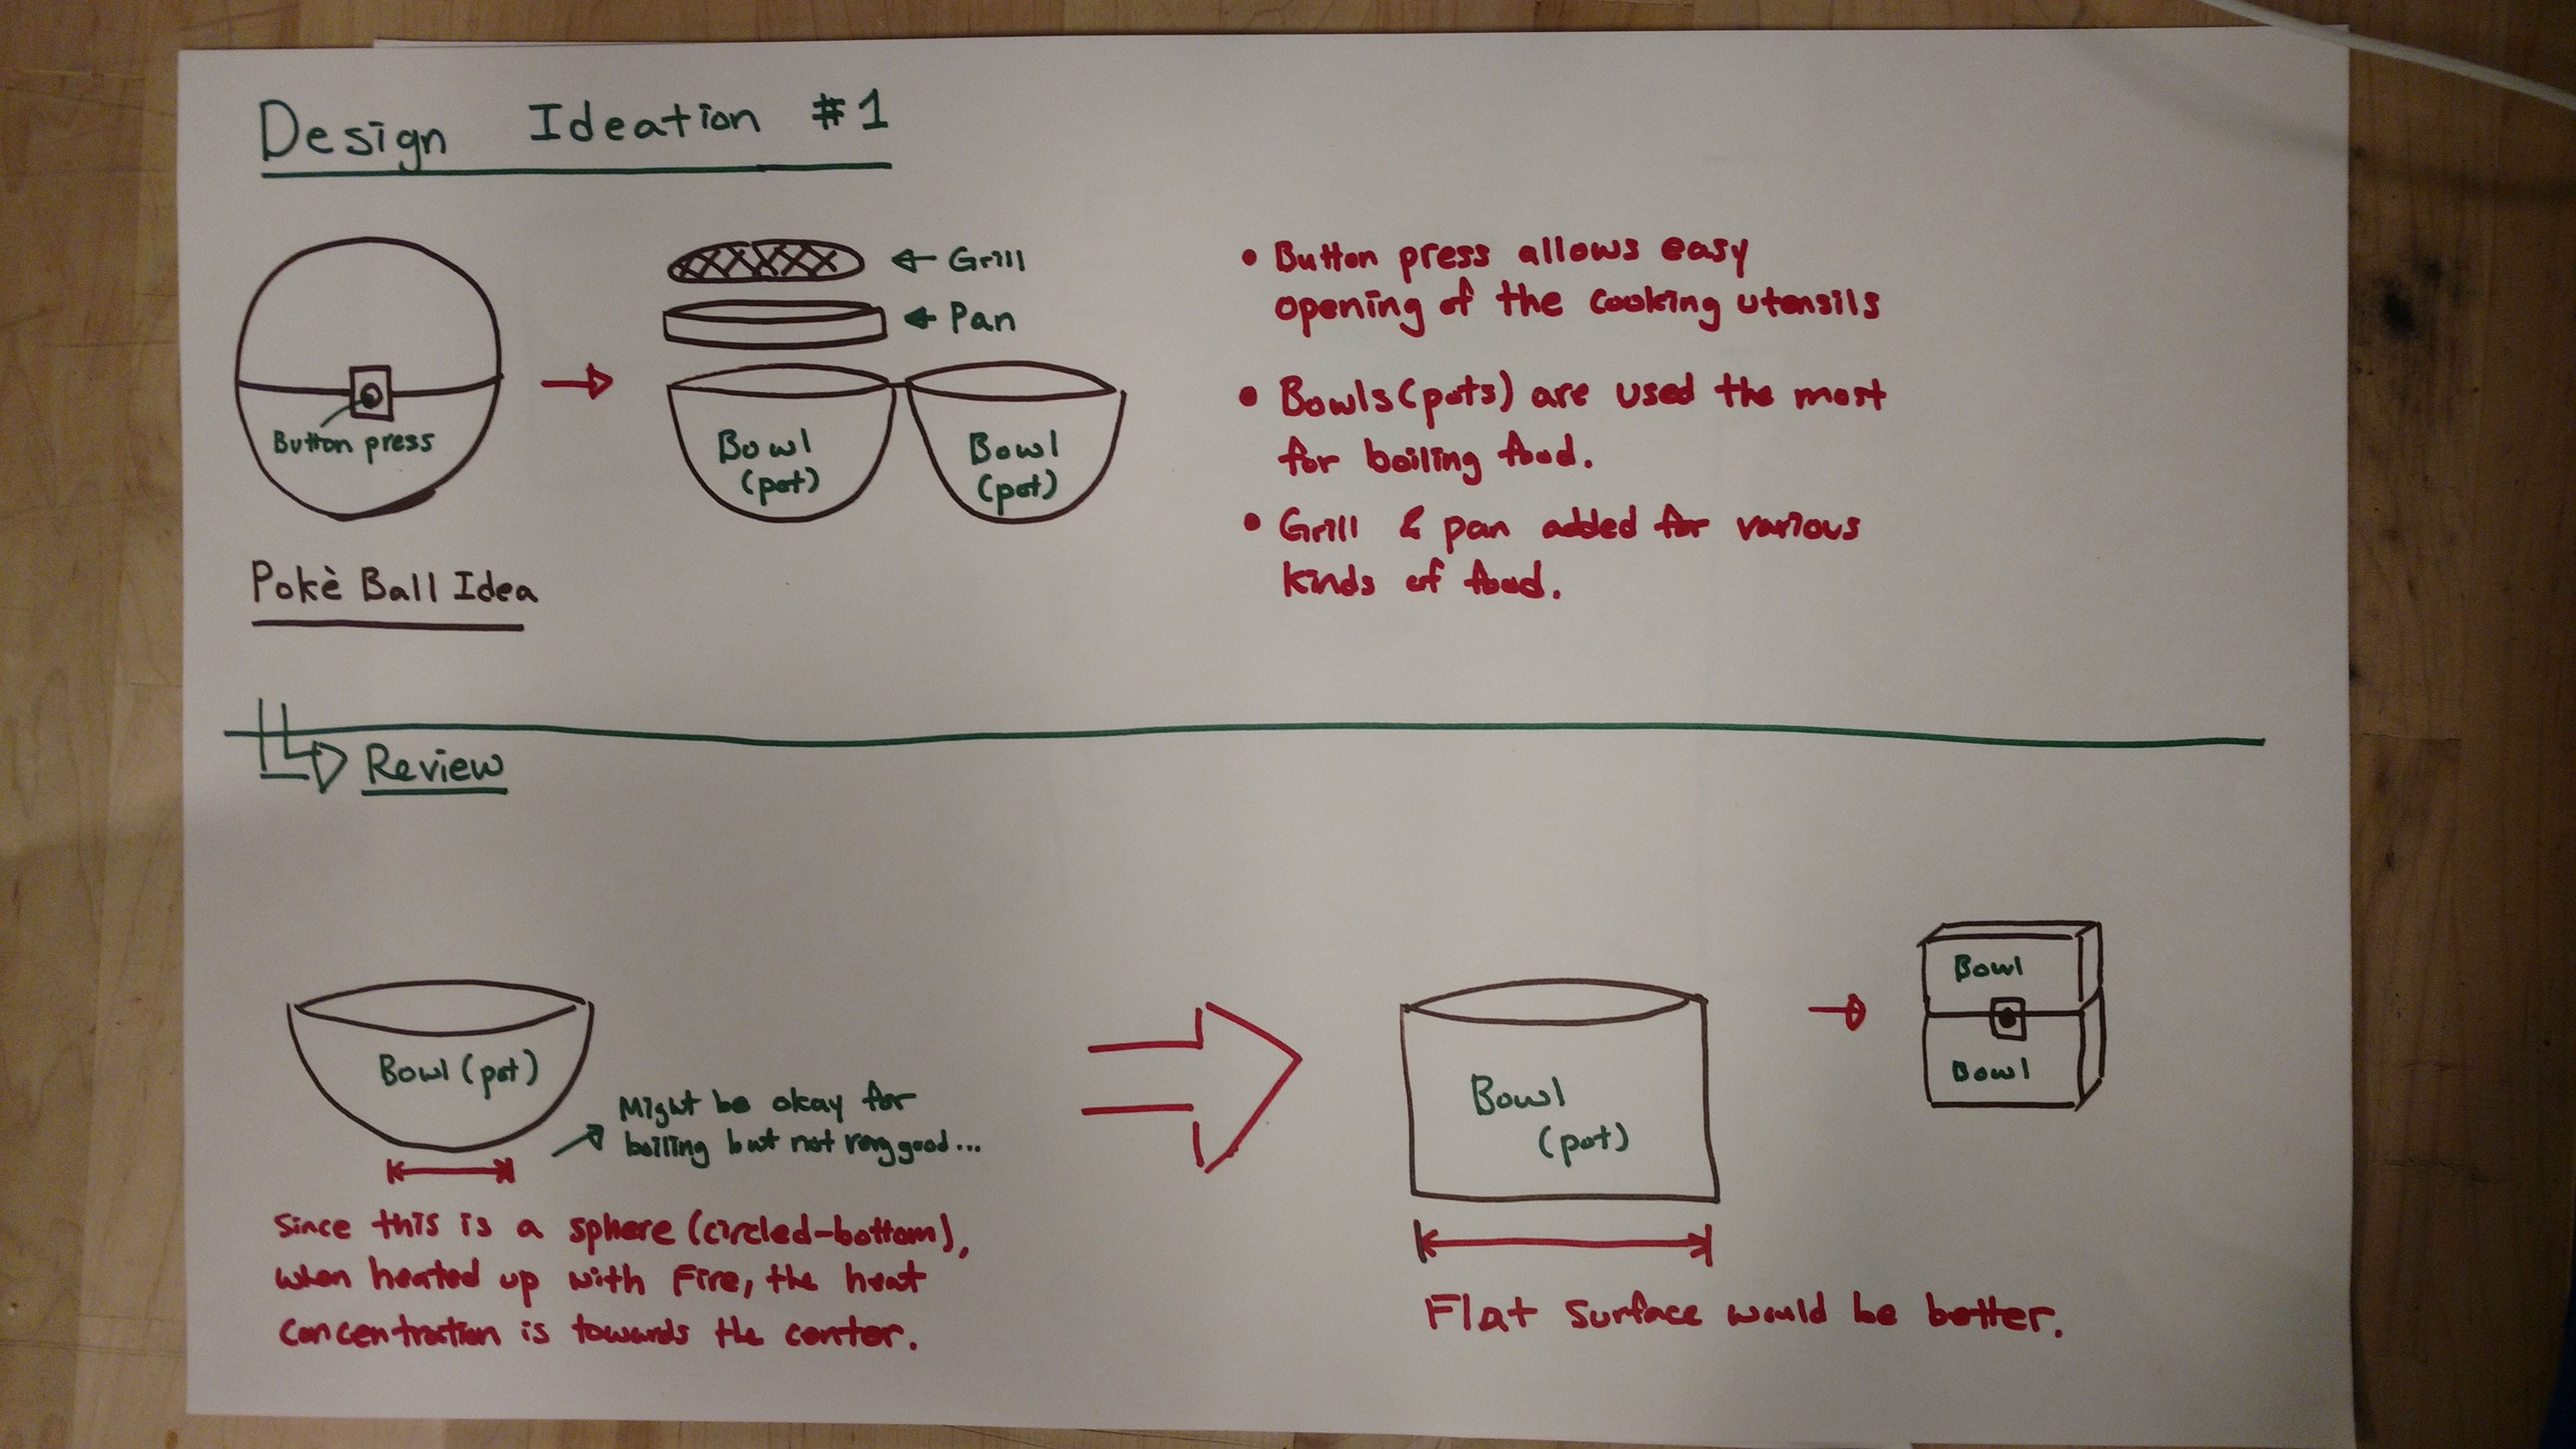 Design Ideation #1
← Grill
← Pan
Button press
Bowl
(pot)
Bowl
(pot)
Pokè Ball Idea
• Button press allows easy
opening of the cooking utensils
• Bowls(pots) are used the most
for boiling food.
• Grill & pan added for various
kinds of food.
Review
Bowl (pot)
Might be okay for
boiling but not very good...
Since this is a sphere (circled-bottom),
when heated up with Fire, the heat
concentration is towards the center.
Bowl
(pot)
Flat surface would be better.
Bowl
Bowl